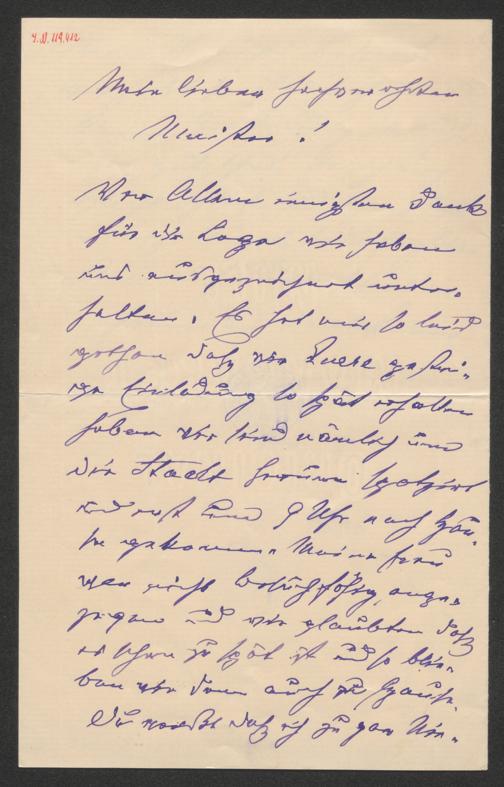 I.N. 119.412
Mein lieber hochverehrter
Meister!
Vor Allem innigsten Dank
für die Loge wir haben
uns ausgezeichnet unter-
halten. Es hat mir so leid
gethan daß wir Eure gestri-
ge Einladung so spät erhalten
haben wir sind nämlich um
die Stadt herum spaziert
und erst um 9 Uhr nach Hau-
se gekommen. Meine Frau
war nicht besuchsfähig ange-
zogen und wir glaubten daß
es schon zu spät ist und so blie-
ben wir denn auch zu Hause.
Du weißt daß ich zu gar